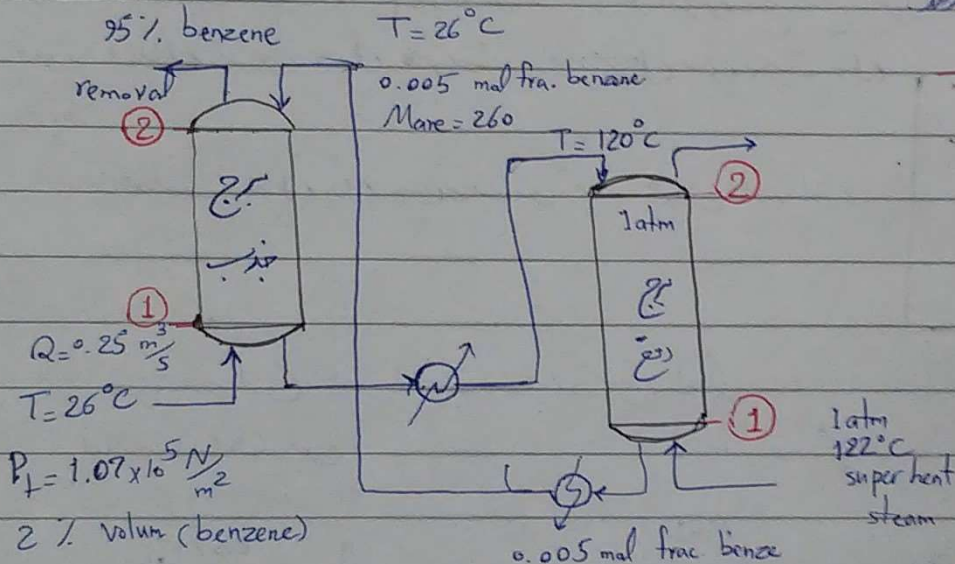 95 % benzene
removal
T = 26°C
0.005 mol fra. benzene
Mave = 260
T = 120°C
②
②
برج
جذب
1atm
برج
دفع
①
①
Q = 0.25 m³/s
T = 26°C
P_t = 1.07 × 10⁵ N/m²
2 % volum (benzene)
1atm
122°C
super heat
steam
0.005 mol frac. benze